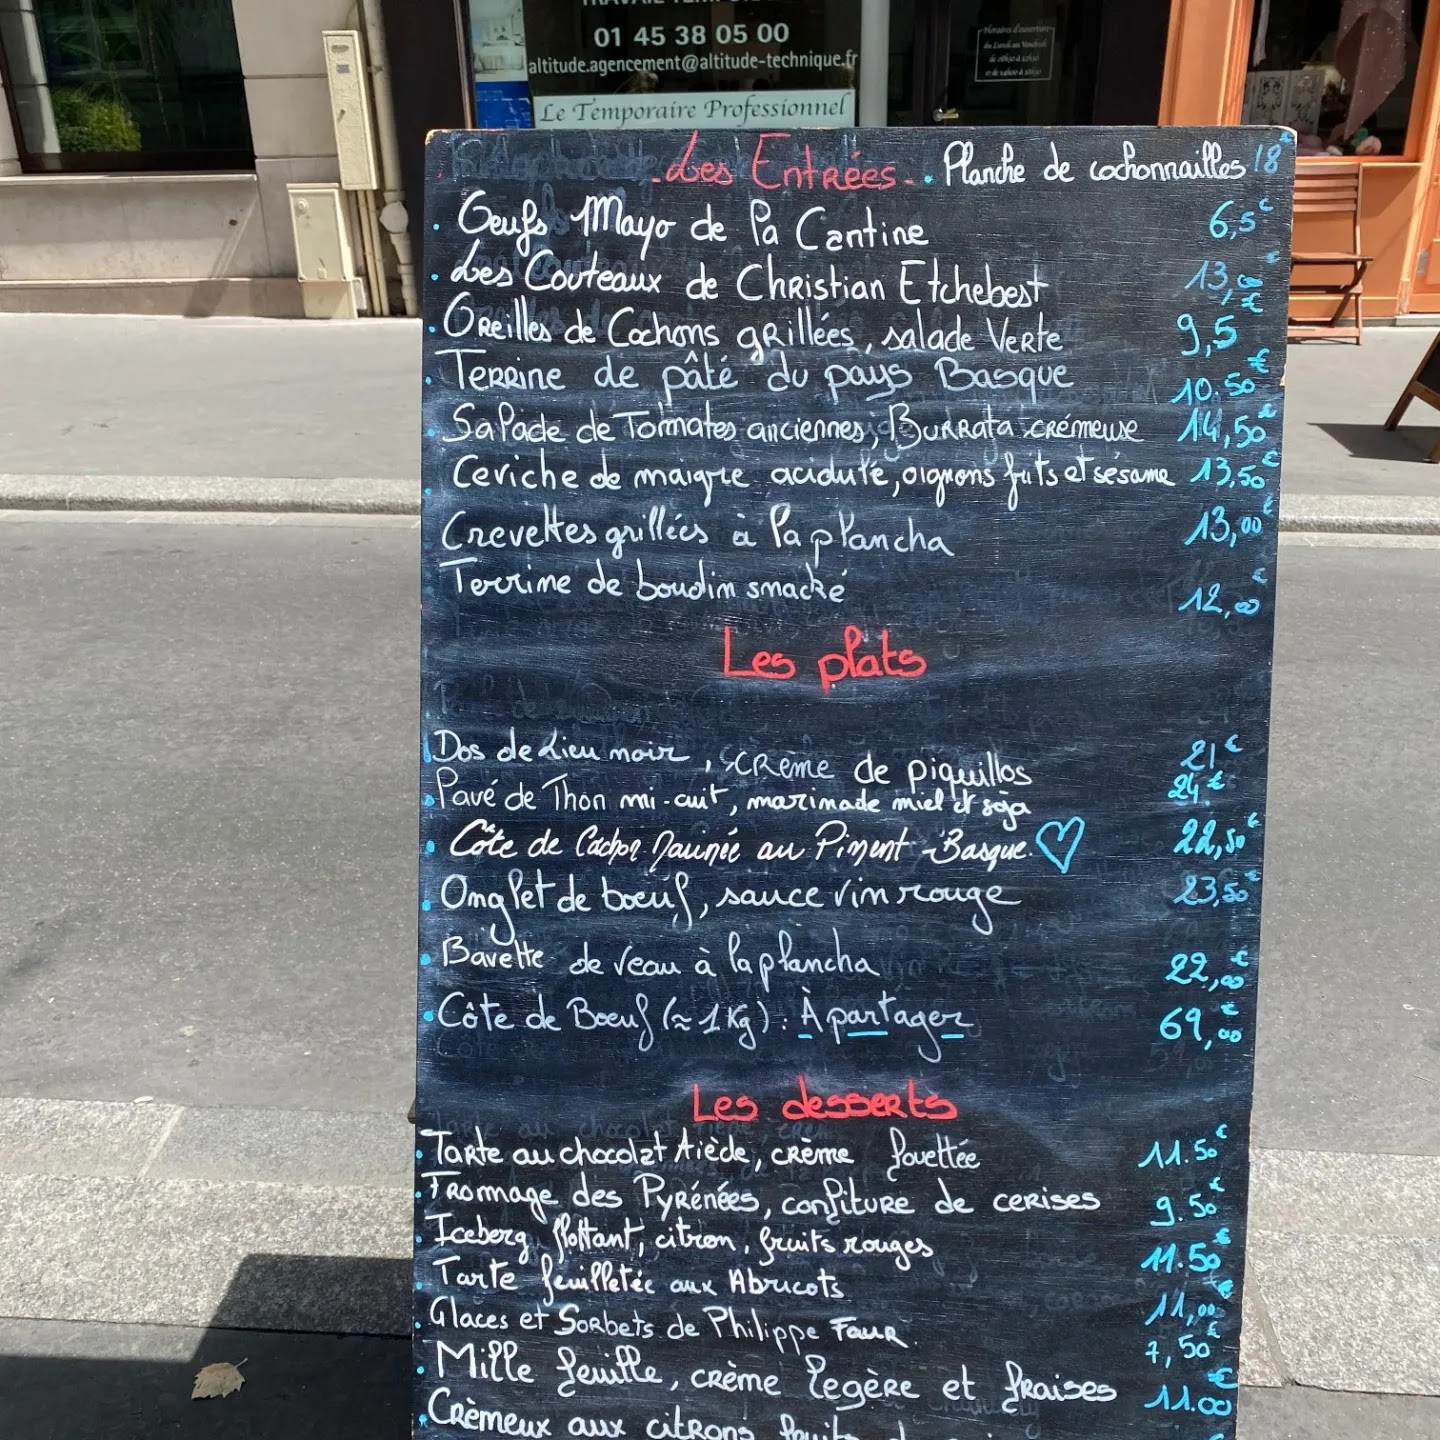 01 45 38 05 00
altitude.agencement@altitude-technique.fr
Le Temporaire Professionnel
Horaires d'ouverture
du Lundi au Vendredi
- Les Entrées - . Planche de cochonnailles 18€
. Oeufs Mayo de la Cantine 6,5€
. Les Couteaux de Christian Etchebest 13,00€
. Oreilles de Cochons grillées, salade Verte 9,5€
. Terrine de pâté du pays Basque 10.50€
. Salade de Tomates anciennes, Burrata crémeuse 14,50€
. Ceviche de maigre acidulé, oignons frits et sésame 13,50€
. Crevettes grillées à la plancha 13,00€
. Terrine de boudin snacké 12,00€
Les plats
. Dos de Lieu noir, crème de piquillos 21€
. Pavé de Thon mi-cuit, marinade miel et soja 24€
. Côte de Cochon Marinée au Piment Basque. ♡ 22,50€
. Onglet de boeuf, sauce vin rouge 23,50€
. Bavette de veau à la plancha 22,00€
. Côte de Boeuf (≈ 1Kg) : À partager 69,00€
Les desserts
. Tarte au chocolat tiède, crème fouettée 11.50€
. Fromage des Pyrénées, confiture de cerises 9.50€
. Iceberg flottant, citron, fruits rouges 11.50€
. Tarte feuilletée aux Abricots 11,00€
. Glaces et Sorbets de Philippe Faur. 7,50€
. Mille feuille, crème légère et fraises 11.00€
. Crèmeux aux citrons, fruits